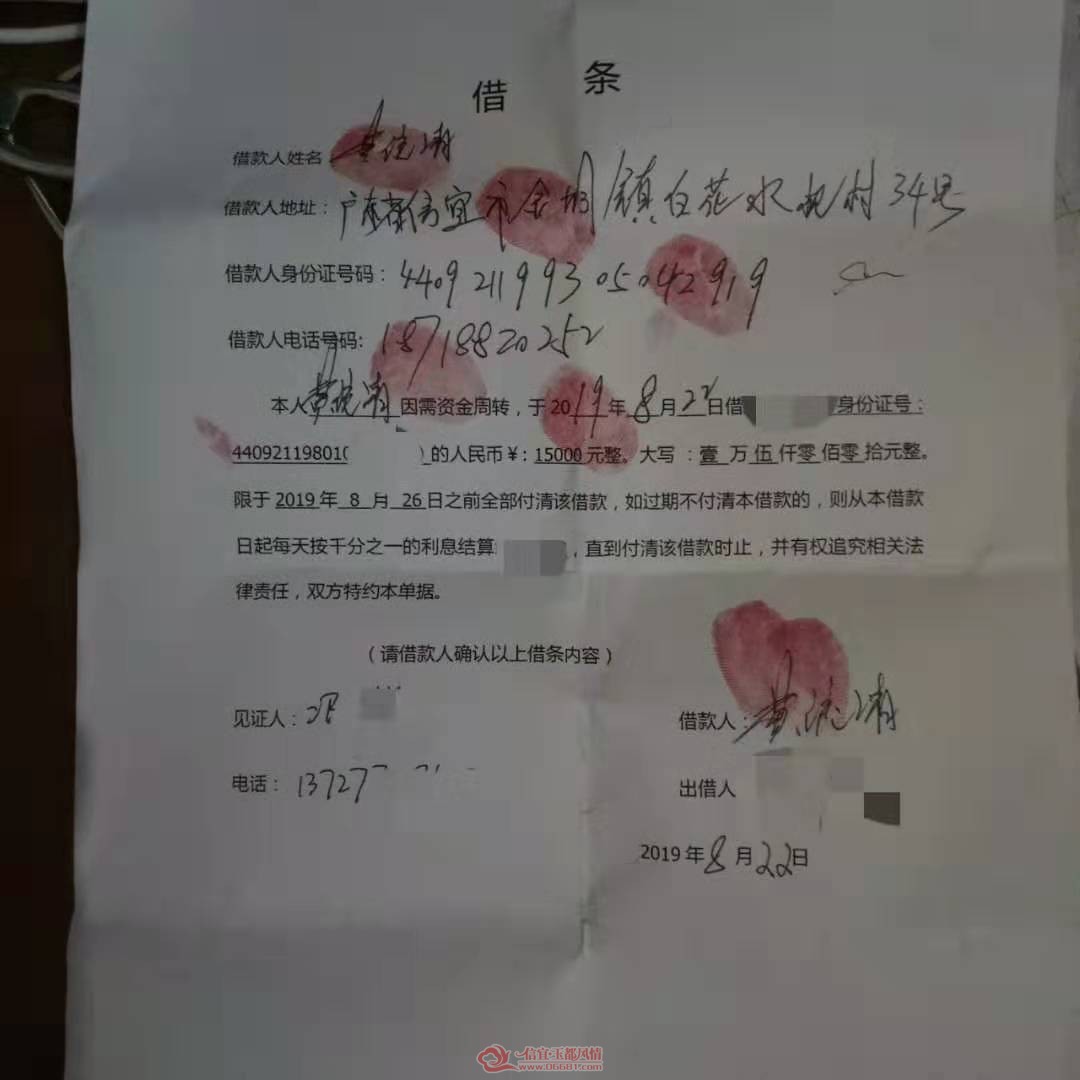 借 条
借款人姓名 黄
借款人地址：广东省信宜市金垌镇白花水 村34号
借款人身份证号码：440921199305042919
借款人电话号码：18718820252
本人黄 因需资金周转，于2019年8月22日借 身份证号：
44092119801 )的人民币￥：15000元整。大写：壹万伍仟零佰零拾元整。
限于2019年8月26日之前全部付清该借款，如过期不付清本借款的，则从本借款
日起每天按千分之一的利息结算 ，直到付清该借款时止，并有权追究相关法
律责任，双方特约本单据。
（请借款人确认以上借条内容）
见证人：
借款人：黄
电话：13727
出借人
2019年8月22日
信宜玉都风情
www.06681.com